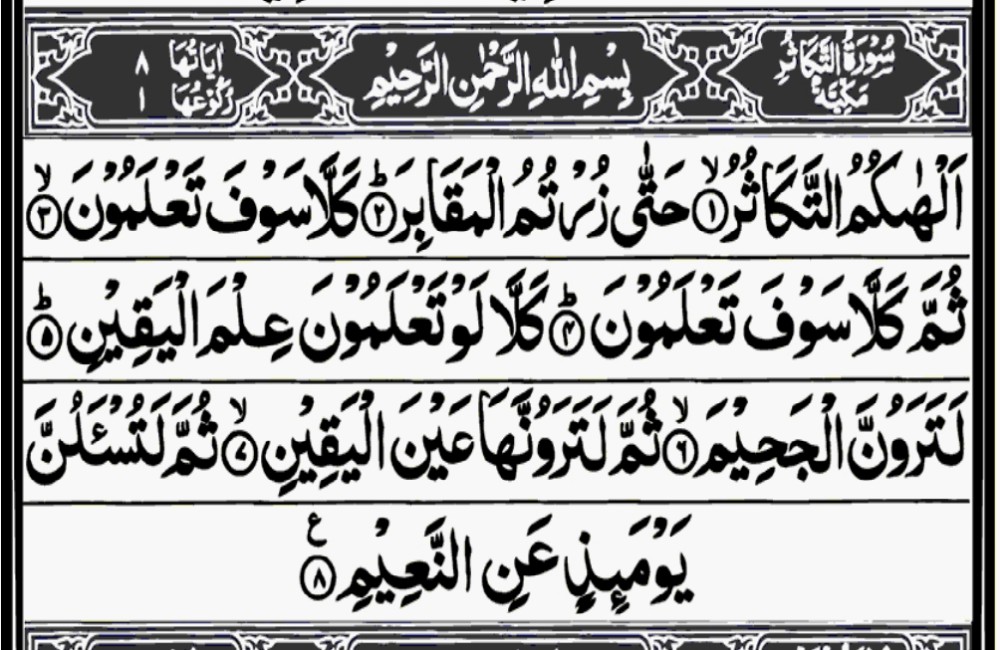 سُوۡرَةُ التَّكَاثُرِ مَكِّيَّةٌ بِسۡمِ اللّٰهِ الرَّحۡمٰنِ الرَّحِيۡمِ اٰيَاتُهَا ٨ رُكُوۡعُهَا ١
اَلۡهٰٮكُمُ التَّكَاثُرُۙ‏ ﴿۱﴾ حَتّٰى زُرۡتُمُ الۡمَقَابِرَؕ‏ ﴿۲﴾ كَلَّا سَوۡفَ تَعۡلَمُوۡنَۙ‏ ﴿۳﴾
ثُمَّ كَلَّا سَوۡفَ تَعۡلَمُوۡنَؕ‏ ﴿۴﴾ كَلَّا لَوۡ تَعۡلَمُوۡنَ عِلۡمَ الۡيَقِيۡنِؕ‏ ﴿۵﴾
لَتَرَوُنَّ الۡجَحِيۡمَۙ‏ ﴿۶﴾ ثُمَّ لَتَرَوُنَّهَا عَيۡنَ الۡيَقِيۡنِۙ‏ ﴿۷﴾ ثُمَّ لَـتُسۡـَٔـلُنَّ
يَوۡمَٮِٕذٍ عَنِ النَّعِيۡمِ ﴿۸﴾ ع